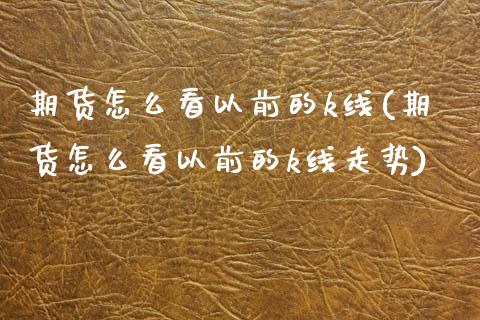 期货怎么看以前的k线(期
货怎么看以前的k线走势)